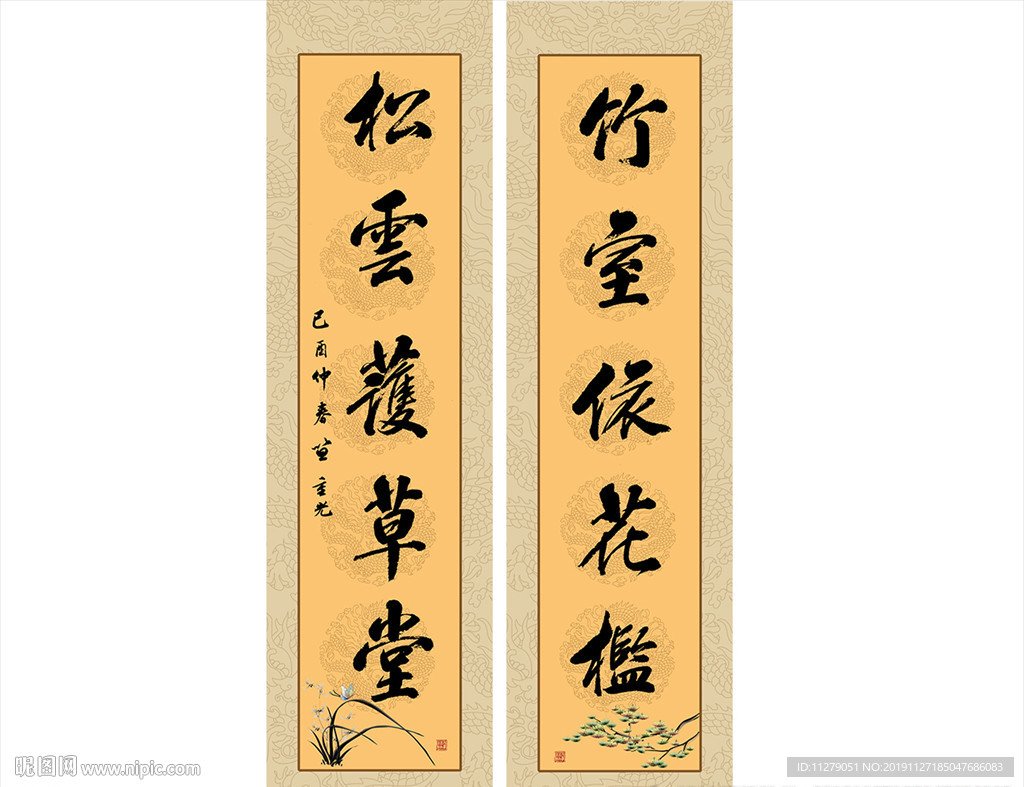 竹室依花檻
松雲護草堂
己酉仲春笪重光
昵图网 www.nipic.com
ID:11279051 NO:20191127185047686083